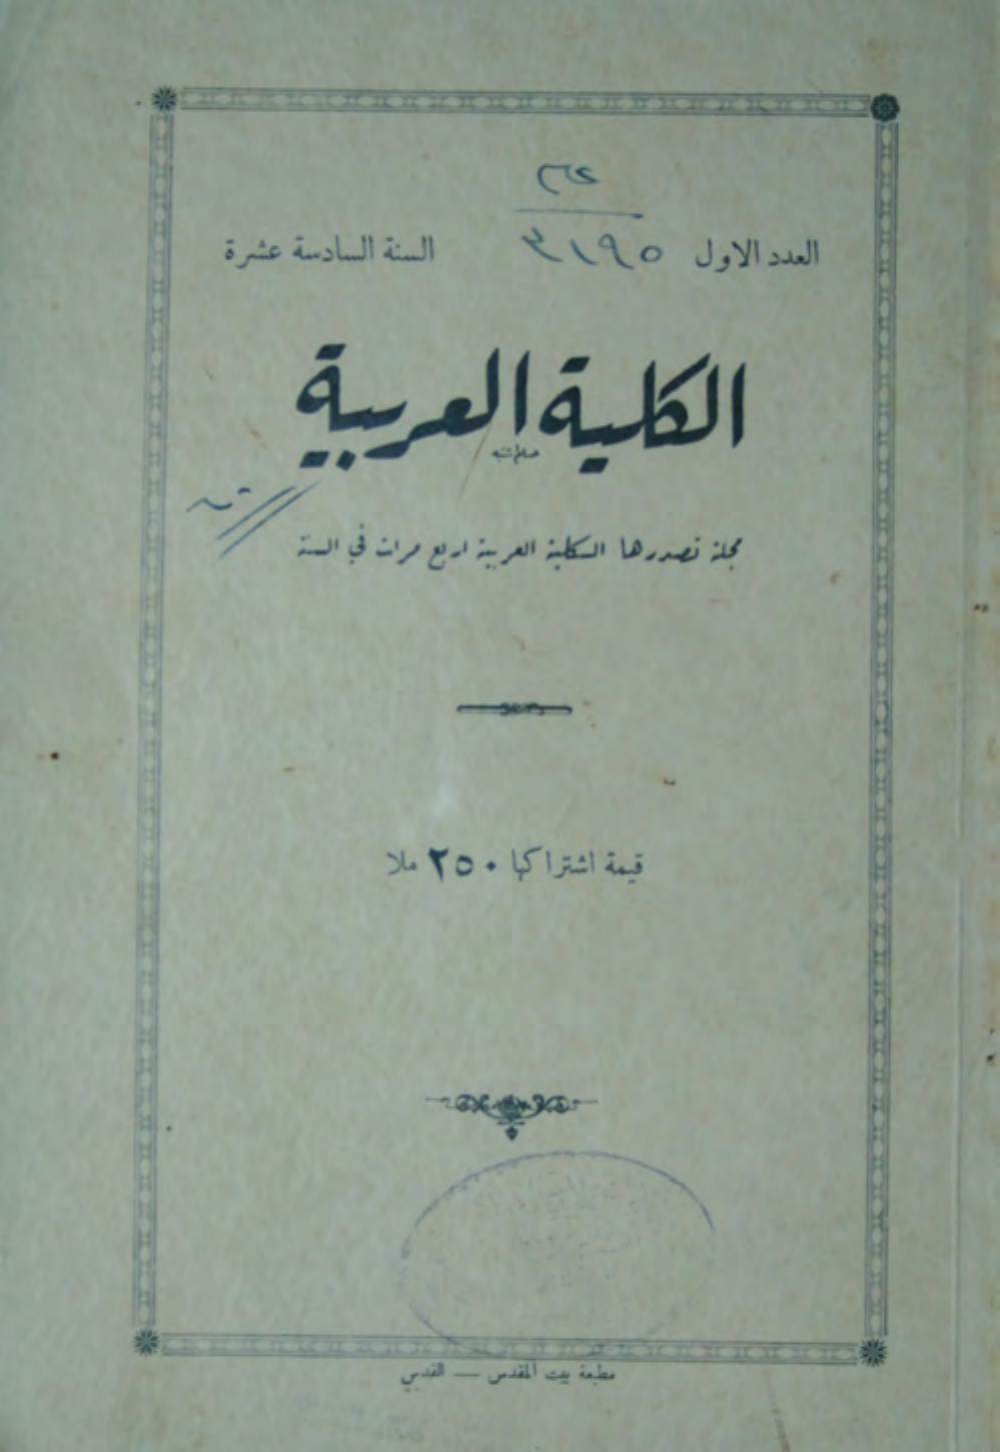 ٣٤
العدد الاول ٣١٩٥ السنة السادسة عشرة
الكلية العربية
مجلة تصدرها الكلية العربية اربع مرات في السنة
قيمة اشتراكها ٢٥٠ ملا
مطبعة بيت المقدس — القدس